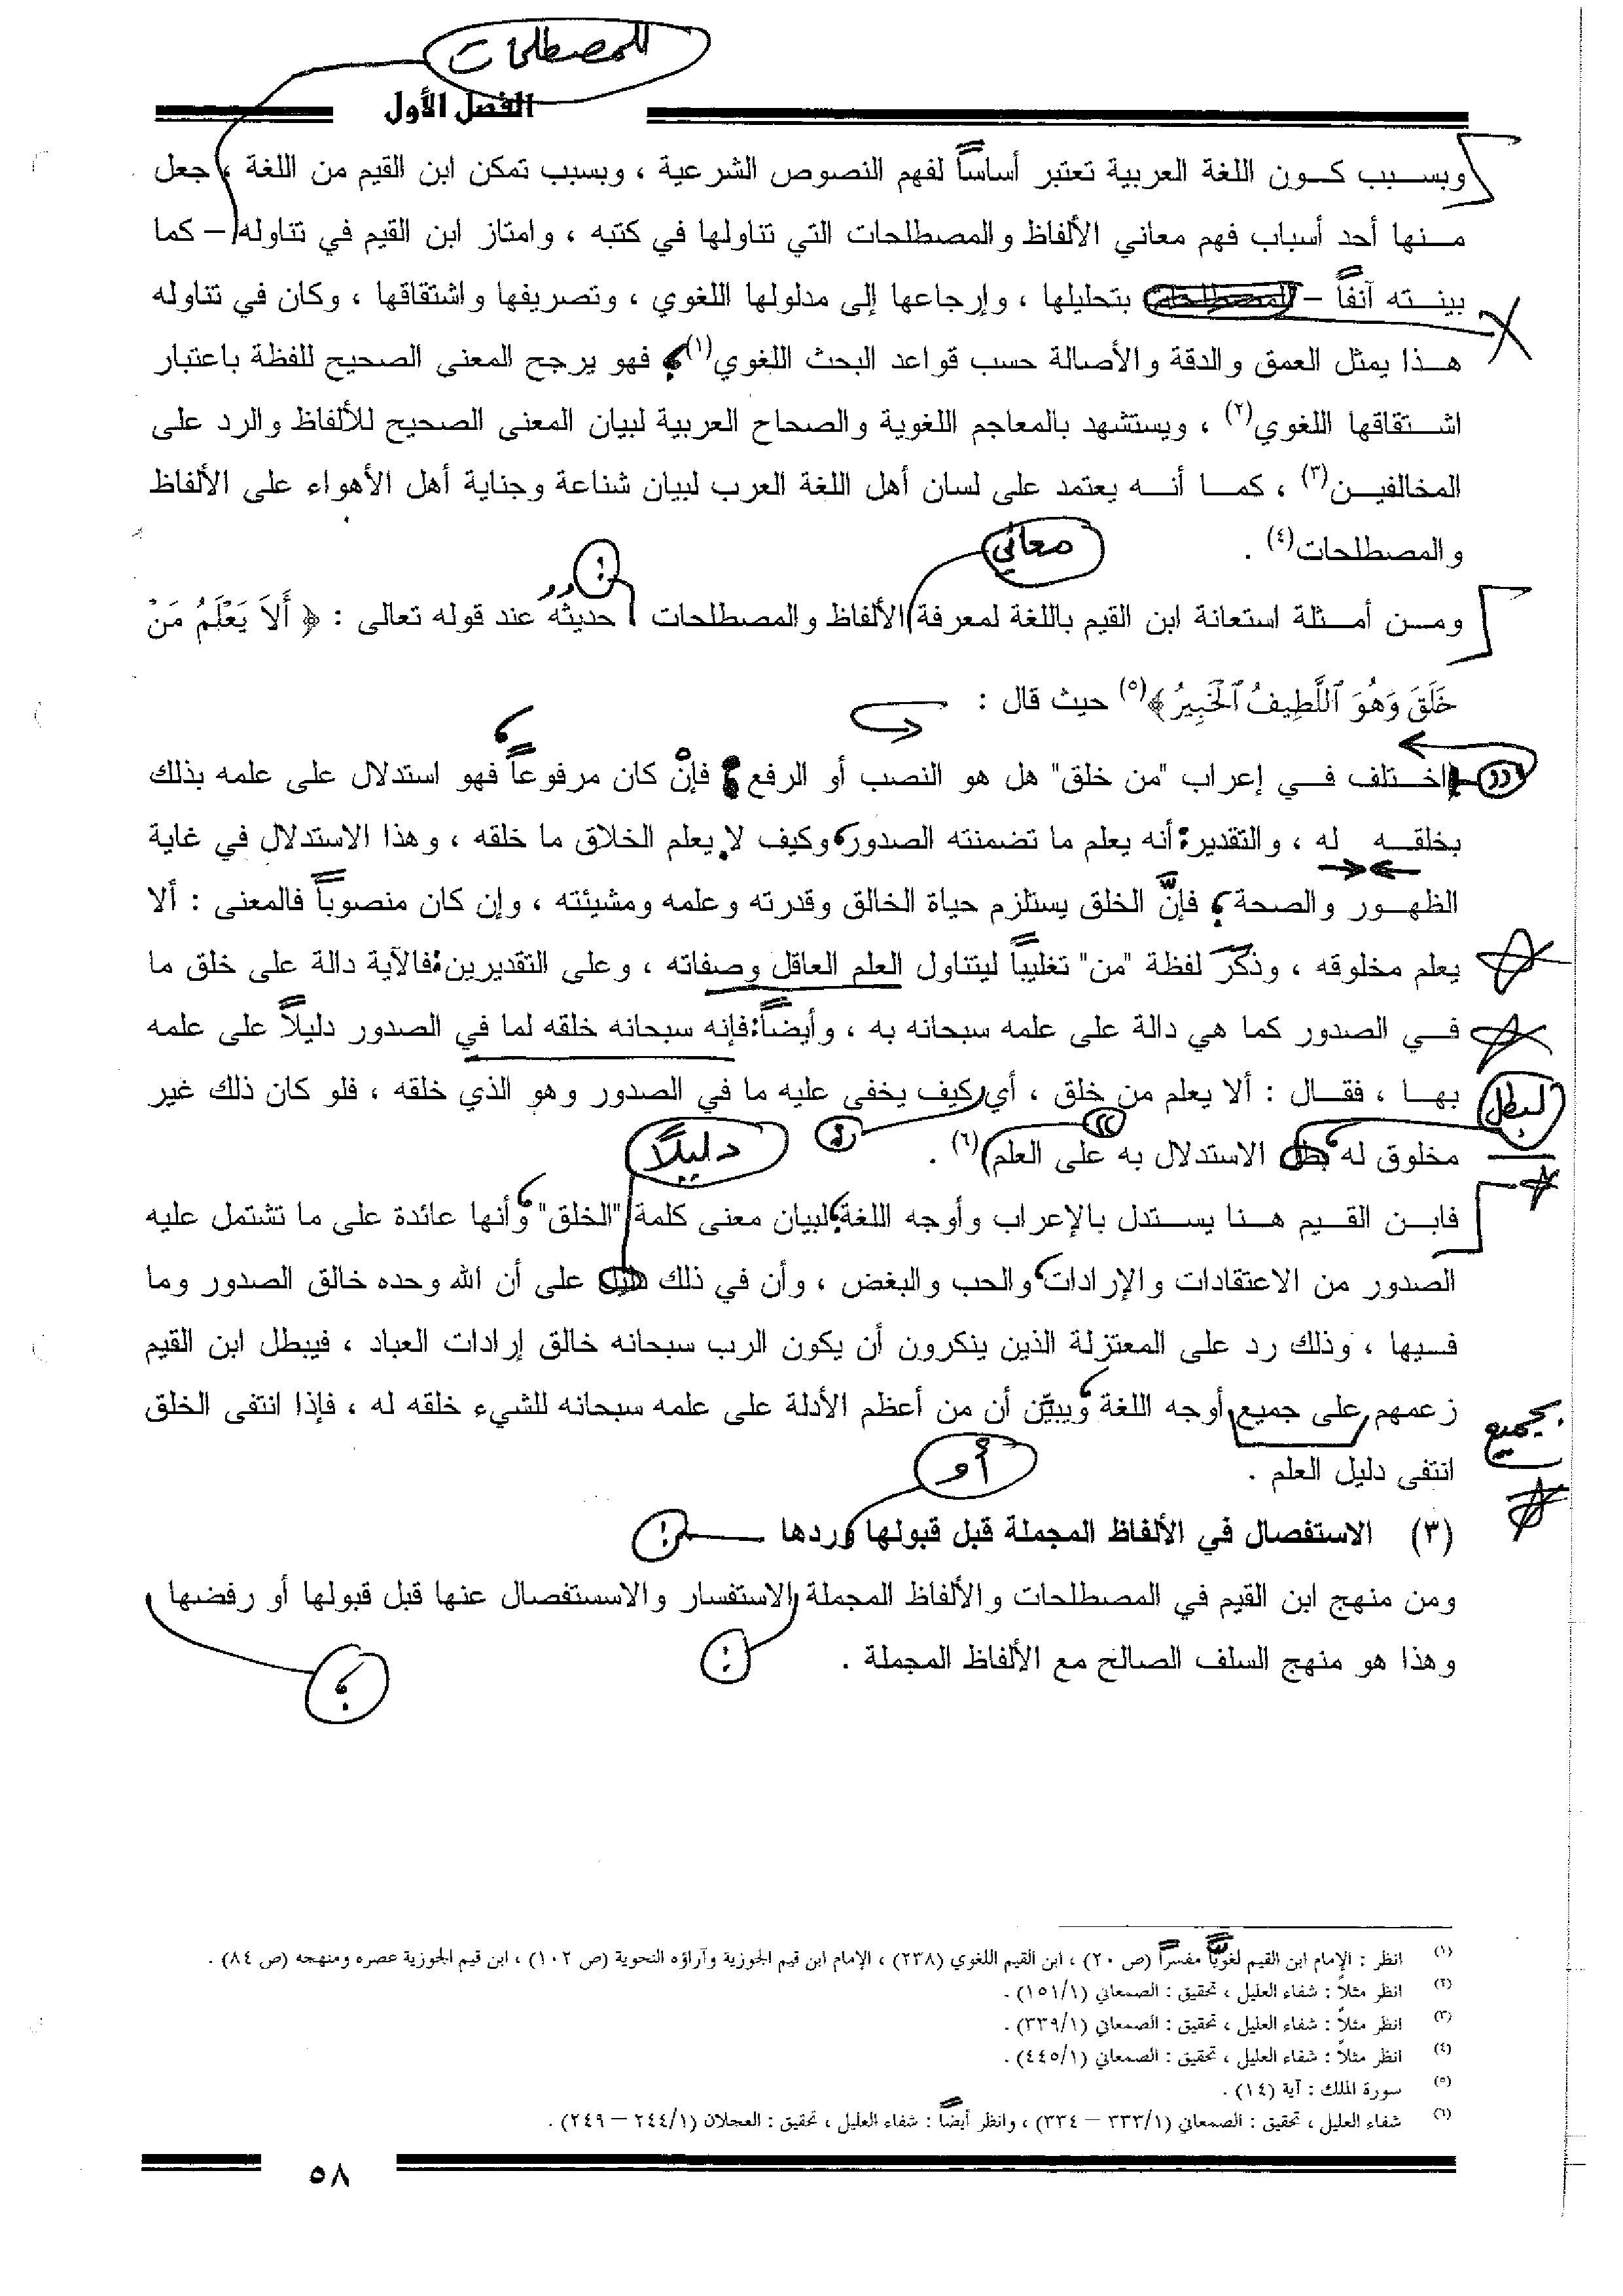 للمصطلحات
الفصل الأول
وبسبب كون اللغة العربية تعتبر أساساً لفهم النصوص الشرعية ، وبسبب تمكن ابن القيم من اللغة ، جعل
منها أحد أسباب فهم معاني الألفاظ والمصطلحات التي تناولها في كتبه ، وامتاز ابن القيم في تناوله – كما
بينته آنفاً – للمصطلحات بتحليلها ، وإرجاعها إلى مدلولها اللغوي ، وتصريفها واشتقاقها ، وكان في تناوله
هذا يمثل العمق والدقة والأصالة حسب قواعد البحث اللغوي(١)؛ فهو يرجح المعنى الصحيح للفظة باعتبار
اشتقاقها اللغوي(٢) ، ويستشهد بالمعاجم اللغوية والصحاح العربية لبيان المعنى الصحيح للألفاظ والرد على
المخالفين(٣) ، كما أنه يعتمد على لسان أهل اللغة العرب لبيان شناعة وجناية أهل الأهواء على الألفاظ
والمصطلحات(٤) .
معاني
:
ومن أمثلة استعانة ابن القيم باللغة لمعرفة الألفاظ والمصطلحات حديثه عند قوله تعالى : ﴿ أَلاَ يَعْلَمُ مَنْ
خَلَقَ وَهُوَ ٱللَّطِيفُ ٱلْخَبِيرُ﴾(٥) حيث قال :
اختلف في إعراب "من خلق" هل هو النصب أو الرفع؟ فإنْ كان مرفوعاً فهو استدلال على علمه بذلك
بخلقه له ، والتقدير: أنه يعلم ما تضمنته الصدور، وكيف لا يعلم الخلاق ما خلقه ، وهذا الاستدلال في غاية
الظهور والصحة؛ فإنَّ الخلق يستلزم حياة الخالق وقدرته وعلمه ومشيئته ، وإن كان منصوباً فالمعنى : ألا
يعلم مخلوقه ، وذكر لفظة "من" تغليباً ليتناول العلم العاقل وصفاته ، وعلى التقديرين: فالآية دالة على خلق ما
في الصدور كما هي دالة على علمه سبحانه به ، وأيضاً: فإنه سبحانه خلقه لما في الصدور دليلاً على علمه
بها ، فقال : ألا يعلم من خلق ، أي كيف يخفى عليه ما في الصدور وهو الذي خلقه ، فلو كان ذلك غير
لبطل
مخلوق له بطل الاستدلال به على العلم(٦) .
دليلًا
فابن القيم هنا يستدل بالإعراب وأوجه اللغة؛ لبيان معنى كلمة "الخلق" وأنها عائدة على ما تشتمل عليه
الصدور من الاعتقادات والإرادات، والحب والبغض ، وأن في ذلك دليل على أن الله وحده خالق الصدور وما
فيها ، وذلك رد على المعتزلة الذين ينكرون أن يكون الرب سبحانه خالق إرادات العباد ، فيبطل ابن القيم
زعمهم على جميع أوجه اللغة، ويبيّن أن من أعظم الأدلة على علمه سبحانه للشيء خلقه له ، فإذا انتفى الخلق
بجميع
انتفى دليل العلم .
أو
(٣) الاستفصال في الألفاظ المجملة قبل قبولها وردها
:
ومن منهج ابن القيم في المصطلحات والألفاظ المجملة الاستفسار والاسستفصال عنها قبل قبولها أو رفضها
وهذا هو منهج السلف الصالح مع الألفاظ المجملة .
:
؛
(١) انظر : الإمام ابن القيم لغويًّا مفسراً (ص ٢٠) ، ابن القيم اللغوي (٢٣٨) ، الإمام ابن قيم الجوزية وآراؤه النحوية (ص ١٠٢) ، ابن قيم الجوزية عصره ومنهجه (ص ٨٤) .
(٢) انظر مثلاً : شفاء العليل ، تحقيق : الصمعاني (١٥١/١) .
(٣) انظر مثلاً : شفاء العليل ، تحقيق : الصمعاني (٣٣٩/١) .
(٤) انظر مثلاً : شفاء العليل ، تحقيق : الصمعاني (٤٤٥/١) .
(٥) سورة الملك : آية (١٤) .
(٦) شفاء العليل ، تحقيق : الصمعاني (٣٣٣/١ – ٣٣٤) ، وانظر أيضاً : شفاء العليل ، تحقيق : العجلان (٢٤٤/١ – ٢٤٩) .
٥٨